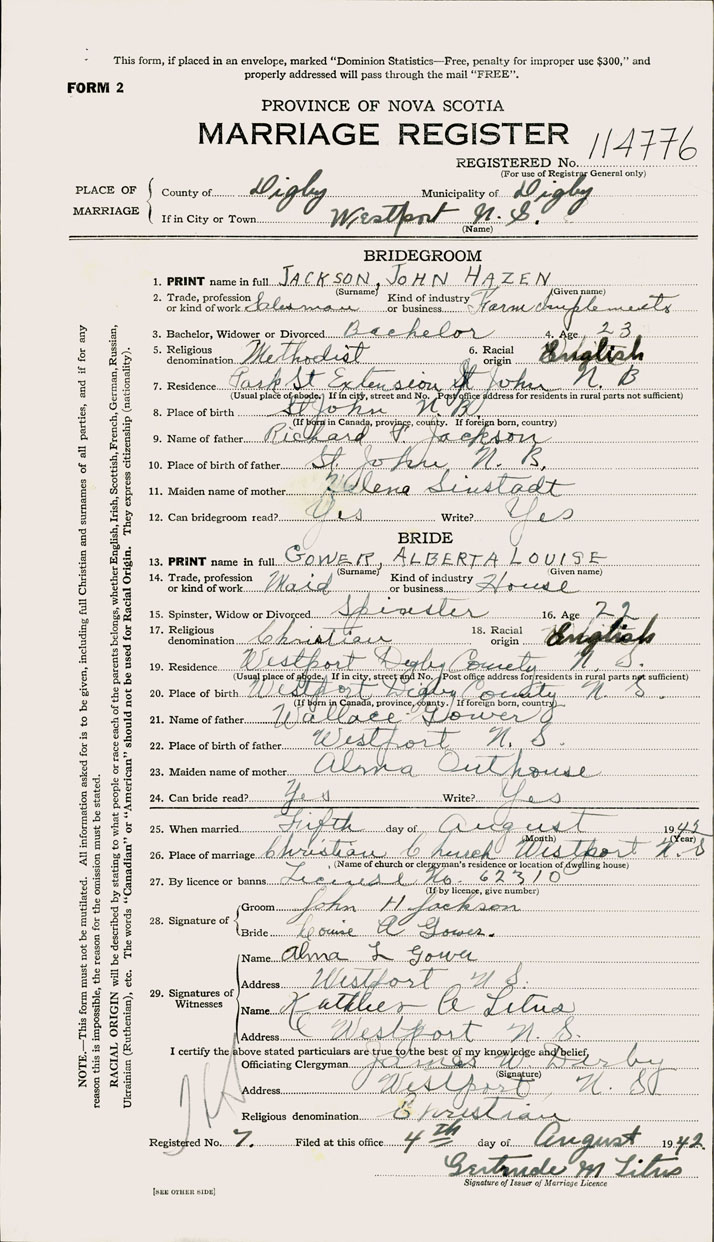 This form, if placed in an envelope, marked "Dominion Statistics—Free, penalty for improper use $300," and
properly addressed will pass through the mail "FREE".
FORM 2
PROVINCE OF NOVA SCOTIA
MARRIAGE REGISTER
REGISTERED No. 114776
(For use of Registrar General only)
PLACE OF MARRIAGE
County of Digby Municipality of Digby
If in City or Town Westport N. S.
(Name)
BRIDEGROOM
1. PRINT name in full JACKSON, JOHN HAZEN
(Surname) (Given name)
2. Trade, profession or kind of work Salesman Kind of industry or business Farm Implements
3. Bachelor, Widower or Divorced Bachelor 4. Age 23
5. Religious denomination Methodist 6. Racial origin English
7. Residence Park St Extension St John N. B
(Usual place of abode. If in city, street and No. Post office address for residents in rural parts not sufficient)
8. Place of birth St John N. B.
(If born in Canada, province, county. If foreign born, country)
9. Name of father Richard Jackson
10. Place of birth of father St. John N. B.
11. Maiden name of mother Helena Sinstadt
12. Can bridegroom read? Yes Write? Yes
BRIDE
13. PRINT name in full GOWER, ALBERTA LOUISE
(Surname) (Given name)
14. Trade, profession or kind of work Maid Kind of industry or business House
15. Spinster, Widow or Divorced Spinster 16. Age 22
17. Religious denomination Christian 18. Racial origin English
19. Residence Westport Digby County N. S.
(Usual place of abode. If in city, street and No. Post office address for residents in rural parts not sufficient)
20. Place of birth Westport Digby County N. S.
(If born in Canada, province, county. If foreign born, country)
21. Name of father Wallace Gower
22. Place of birth of father Westport N. S.
23. Maiden name of mother Alma Outhouse
24. Can bride read? Yes Write? Yes
25. When married Fifth day of August 1942
(Month) (Year)
26. Place of marriage Christian Church Westport N. S
(Name of church or clergyman's residence or location of dwelling house)
27. By licence or banns License No. 62310
(If by licence, give number)
28. Signature of
Groom John H Jackson
Bride Louise A Gower.
29. Signatures of Witnesses
Name Alma L Gower
Address Westport N. S.
Name Kathleen A Titus
Address Westport N. S.
I certify the above stated particulars are true to the best of my knowledge and belief,
Officiating Clergyman James W. Darby
(Signature)
Address Westport, N. S.
Religious denomination Christian
Registered No. 7. Filed at this office 4th day of August 1942
Gertrude M Titus
Signature of Issuer of Marriage Licence
[SEE OTHER SIDE]
NOTE.—This form must not be mutilated. All information asked for is to be given, including full Christian and surnames of all parties, and if for any
reason this is impossible, the reason for the omission must be stated.
RACIAL ORIGIN will be described by stating to what people or race each of the parents belongs, whether English, Irish, Scottish, French, German, Russian,
Ukrainian (Ruthenian), etc. The words "Canadian" or "American" should not be used for Racial Origin. They express citizenship (nationality).